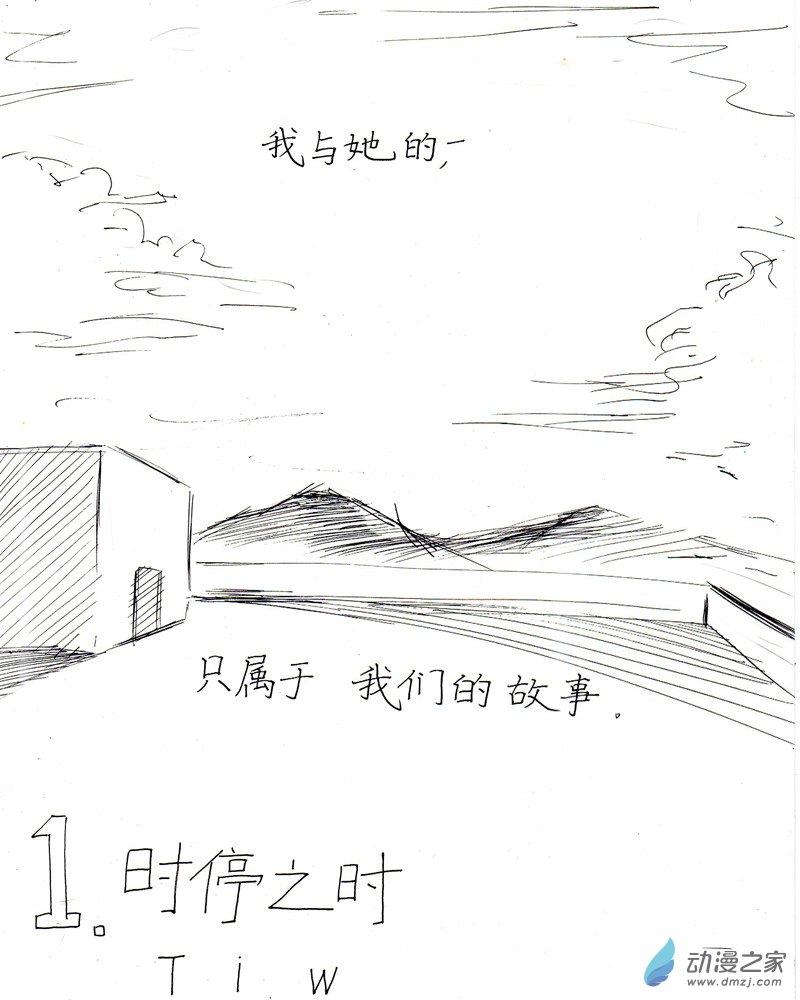 我与她的,一
只属于 我们的故事。
1. 时停之时
T i w
动漫之家
www.dmzj.com